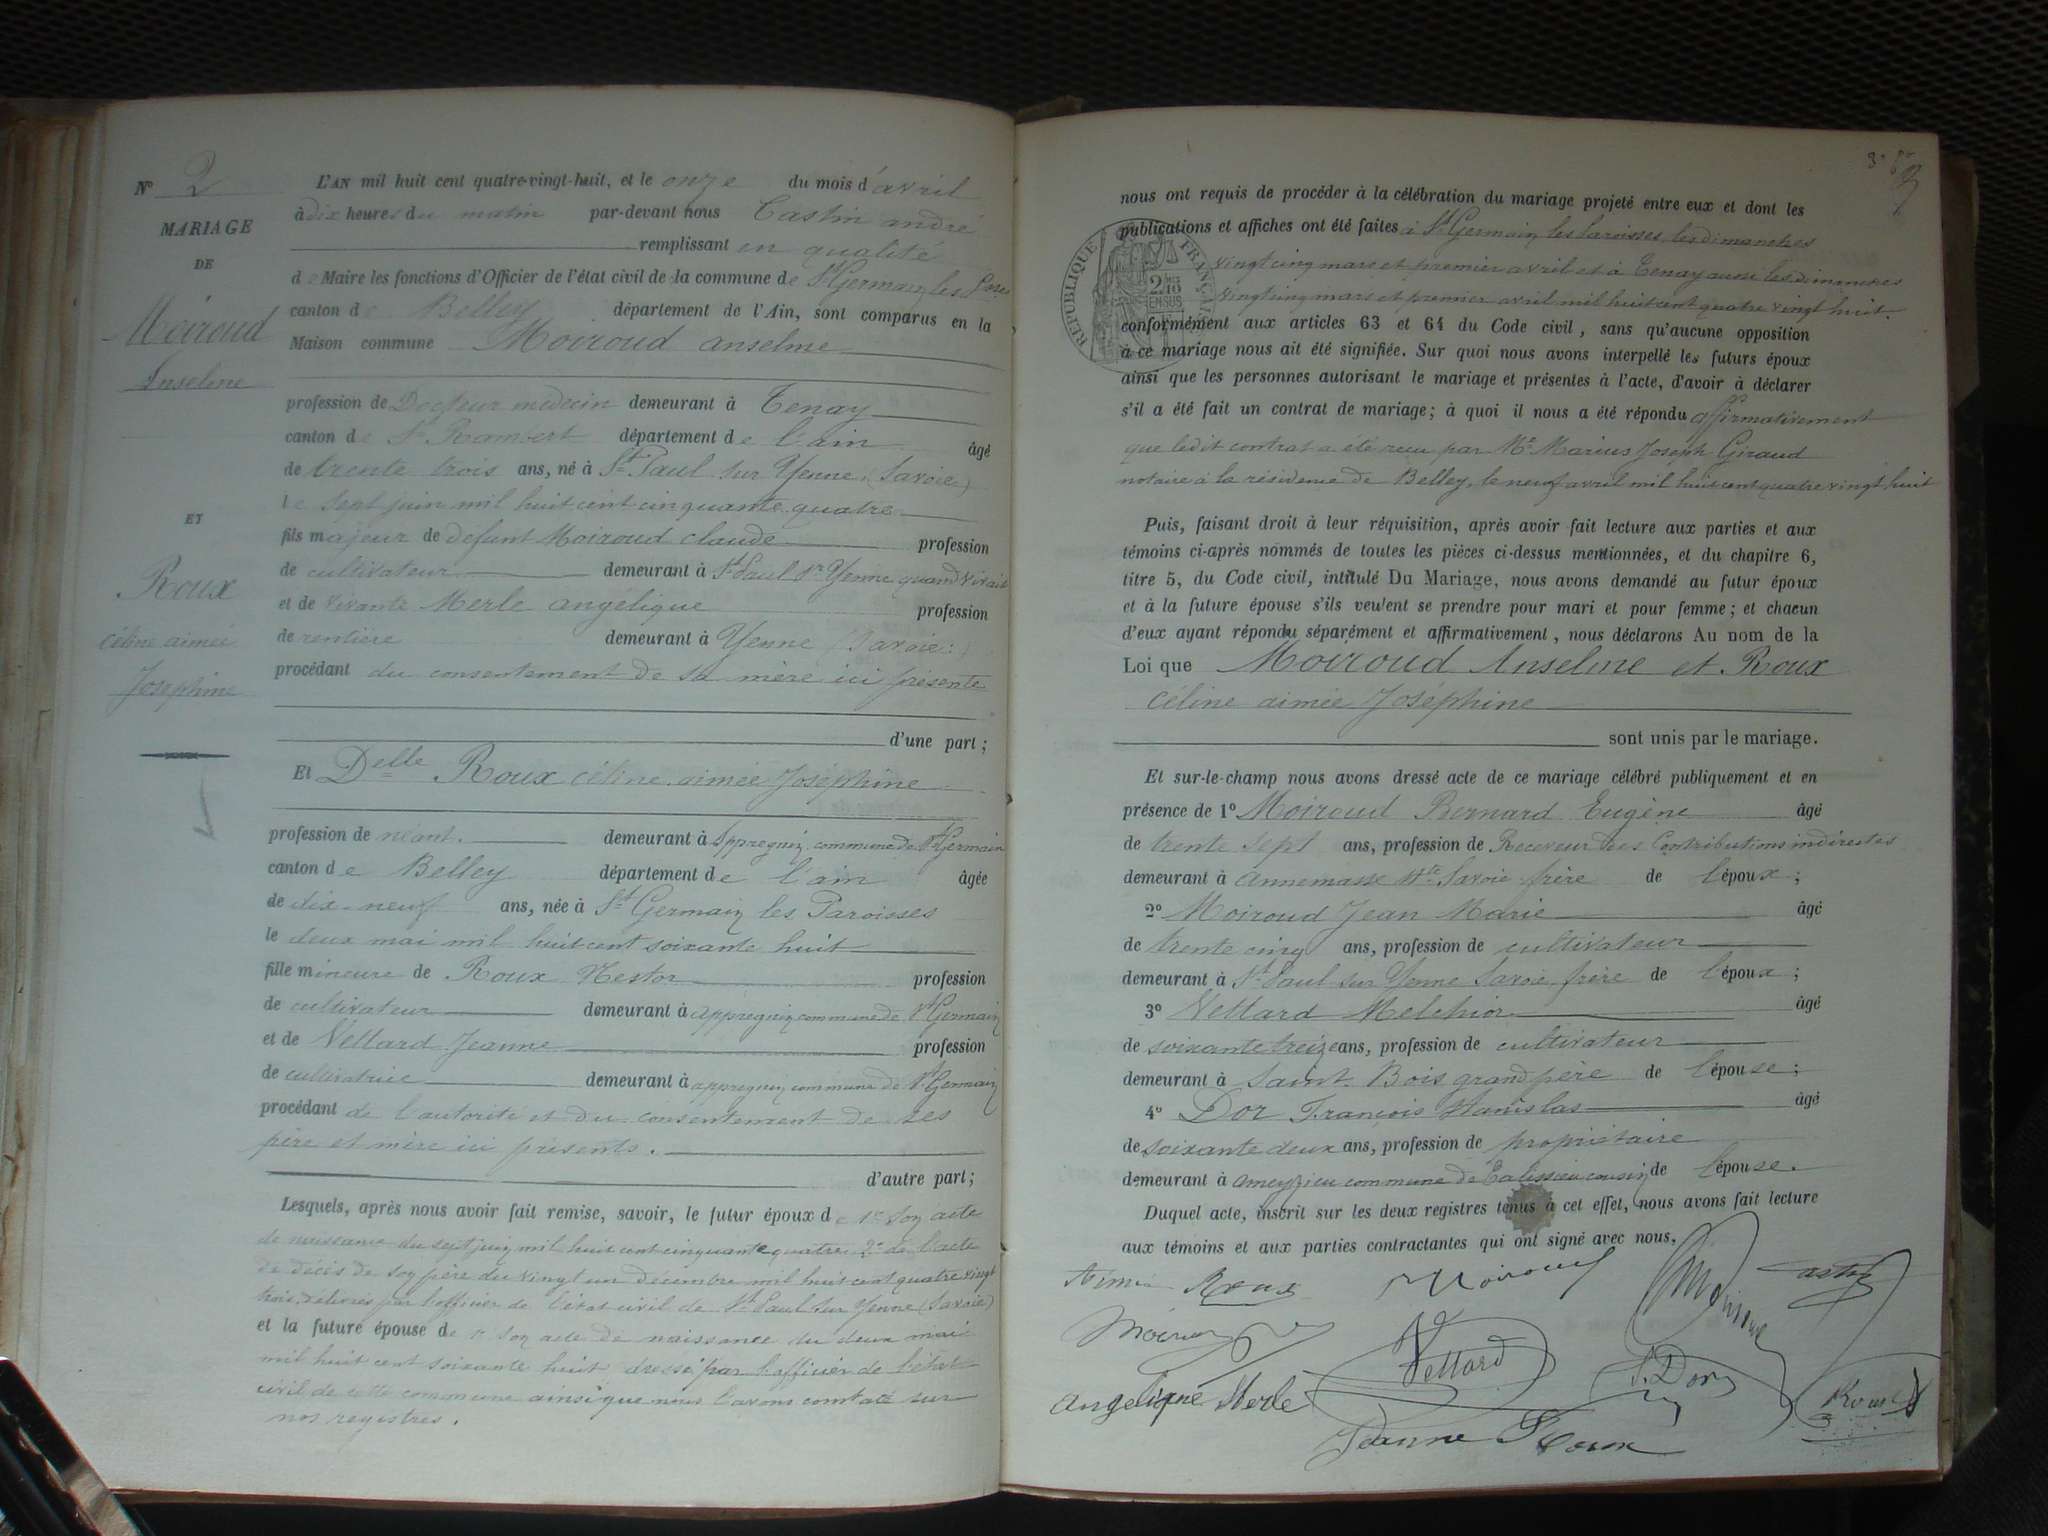 N° 2
MARIAGE
DE
Moiroud
Anselme
ET
Roux
céline aimée
Joséphine
L'AN mil huit cent quatre-vingt-huit, et le onze du mois d'avril
à dix heures du matin par-devant nous Castin andré
remplissant en qualité
de Maire les fonctions d'Officier de l'état civil de la commune de St Germain les Paroi
canton de Belley département de l'Ain, sont comparus en la
Maison commune Moiroud anselme
profession de Docteur medecin demeurant à Tenay
canton de St Rambert département de l'ain âgé
de trente trois ans, né à St Paul sur Yenne (Savoie)
le sept juin mil huit cent cinquante quatre
fils majeur de defunt Moiroud claude profession
de cultivateur demeurant à St Paul sr Yenne quand vivait
et de vivante Merle angélique profession
de rentière demeurant à Yenne (Savoie)
procédant du consentement de sa mère ici présente
d'une part;
Et Delle Roux céline aimée Joséphine
profession de néant. demeurant à Appregnin commune de St Germain
canton de Belley département de l'ain âgée
de dix-neuf ans, née à St Germain les Paroisses
le deux mai mil huit cent soixante huit
fille mineure de Roux Nestor profession
de cultivateur demeurant à appregnin commune de St Germain
et de Vettard Jeanne profession
de cultivatrice demeurant à appregnin commune de St Germain
procédant de l'autorité et du consentement de ses
père et mère ici présents.
d'autre part;
Lesquels, après nous avoir fait remise, savoir, le futur époux de 1° son acte
de naissance du sept juin mil huit cent cinquante quatre 2° de l'acte
de décès de son père du vingt un décembre mil huit cent quatre vingt
trois, délivrés par l'officier de l'état civil de St Paul sur Yenne (Savoie)
et la future épouse de 1° son acte de naissance du deux mai
mil huit cent soixante huit dressé par l'officier de l'état
civil de cette commune ainsi que nous l'avons constaté sur
nos registres.
nous ont requis de procéder à la célébration du mariage projeté entre eux et dont les
publications et affiches ont été faites à St Germain les Paroisses les dimanches
vingt cinq mars et premier avril et à Tenay aussi les dimanches
vingt cinq mars et premier avril mil huit cent quatre vingt huit.
RÉPUBLIQUE FRANÇAISE
conformément aux articles 63 et 64 du Code civil, sans qu'aucune opposition
à ce mariage nous ait été signifiée. Sur quoi nous avons interpellé les futurs époux
ainsi que les personnes autorisant le mariage et présentes à l'acte, d'avoir à déclarer
s'il a été fait un contrat de mariage; à quoi il nous a été répondu affirmativement
que ledit contrat a été reçu par Me Marius Joseph Giraud
notaire à la résidence de Belley, le neuf avril mil huit cent quatre vingt huit
Puis, faisant droit à leur réquisition, après avoir fait lecture aux parties et aux
témoins ci-après nommés de toutes les pièces ci-dessus mentionnées, et du chapitre 6,
titre 5, du Code civil, intitulé Du Mariage, nous avons demandé au futur époux
et à la future épouse s'ils veulent se prendre pour mari et pour femme; et chacun
d'eux ayant répondu séparément et affirmativement, nous déclarons Au nom de la
Loi que Moiroud Anselme et Roux
céline aimée Joséphine
sont unis par le mariage.
Et sur-le-champ nous avons dressé acte de ce mariage célébré publiquement et en
présence de 1° Moiroud Bernard Eugène âgé
de trente sept ans, profession de Receveur des Contributions indirectes
demeurant à annemasse Hte Savoie frère de l'époux;
2° Moiroud Jean Marie âgé
de trente cinq ans, profession de cultivateur
demeurant à St Paul sur Yenne Savoie frère de l'époux;
3° Vettard Melchior âgé
de soixante treize ans, profession de cultivateur
demeurant à Saint Bois grand père de l'épouse;
4° Dor François Stanislas âgé
de soixante deux ans, profession de propriétaire
demeurant à ameyzieu commune de Talissieu cousin de l'épouse.
Duquel acte, inscrit sur les deux registres tenus à cet effet, nous avons fait lecture
aux témoins et aux parties contractantes qui ont signé avec nous,
Roux Moiroud
Vettard S. Dor
Angelique Merle Roux
Jeanne Roux